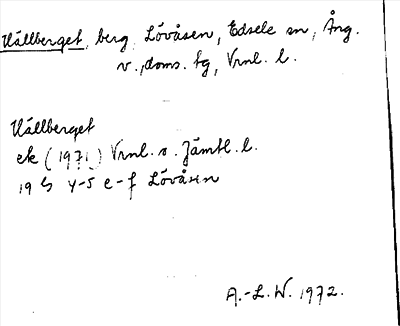 Källberget, berg, Lövåsen, Edsele sn, Ång.
v., doms. tg, Vrnl. l.
Källberget
ek (1971) Vrnl. o. Jämtl. l.
19 G 4-5 e-f Lövåsen
A.-L. W. 1972.